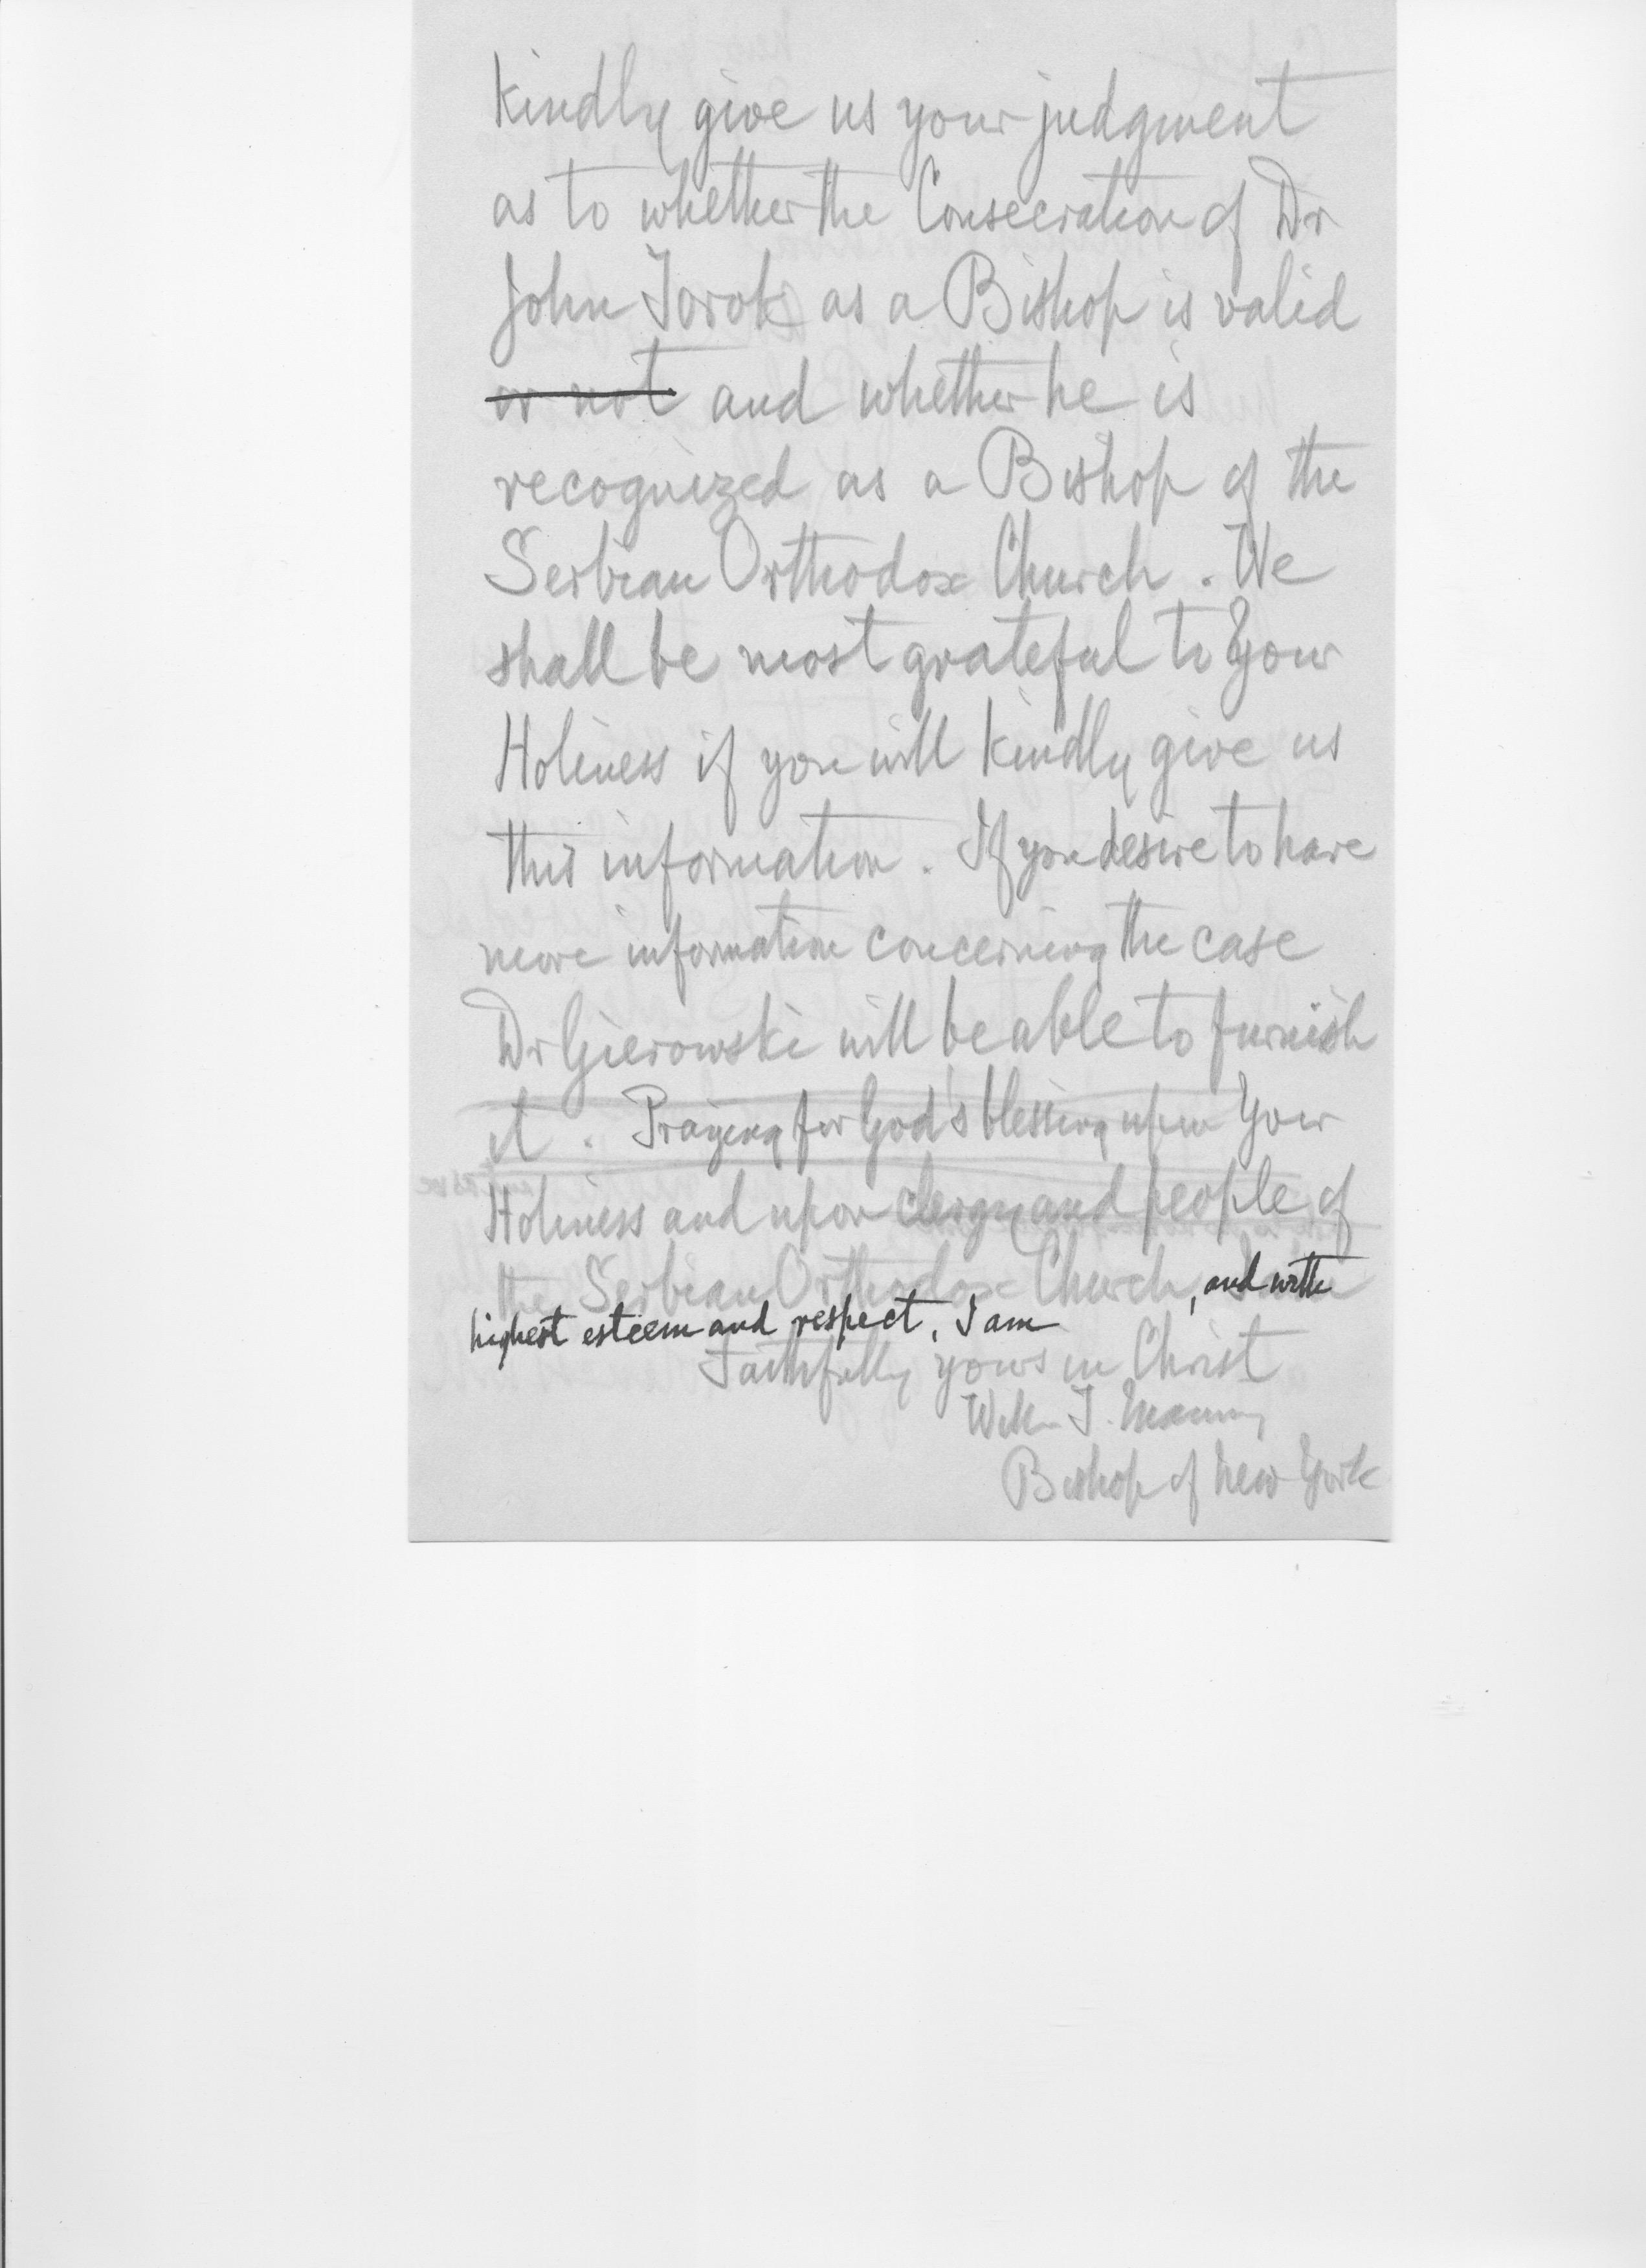 kindly give us your judgment
as to whether the Consecration of Dr
John Torok as a Bishop is valid
or not and whether he is
recognized as a Bishop of the
Serbian Orthodox Church. We
shall be most grateful to Your
Holiness if you will kindly give us
this information. If you desire to have
more information concerning the case
Dr Gierowski will be able to furnish
it. Praying for God's blessing upon Your
Holiness and upon clergy and people of
the Serbian Orthodox Church, and with
highest esteem and respect, I am
Faithfully yours in Christ
Willm T. Manning
Bishop of New York